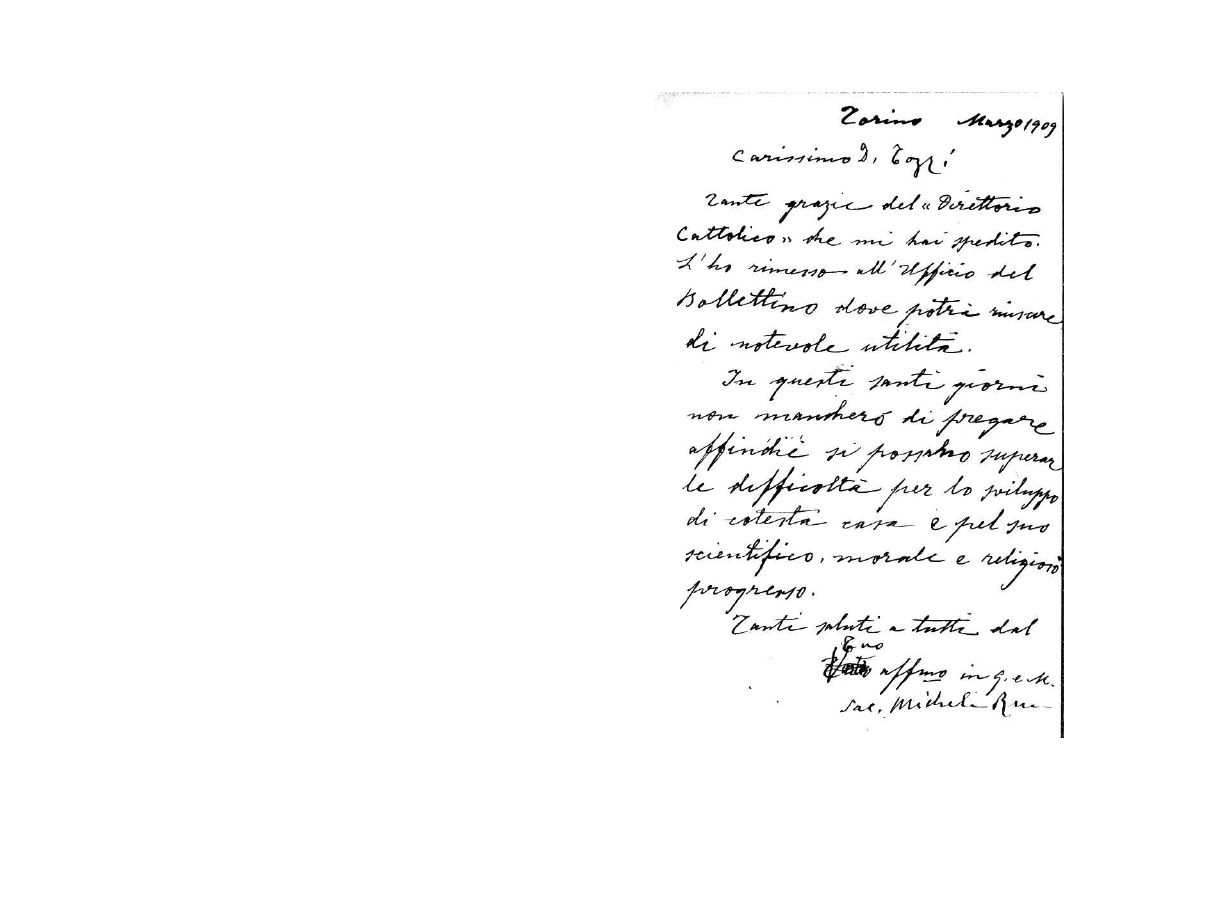 Torino Marzo 1909
Carissimo D. Tozzi
Tante grazie del « Direttorio
Cattolico » che mi hai spedito.
L'ho rimesso all'Ufficio del
Bollettino dove potrà riuscire
di notevole utilità.
In questi santi giorni
non mancherò di pregare
affinchè si possano superar
le difficoltà per lo sviluppo
di cotesta casa e pel suo
scientifico, morale e religioso
progresso.
Tanti saluti a tutti dal
Tuo
affmo in G. e M.
Sac. Michele Rua